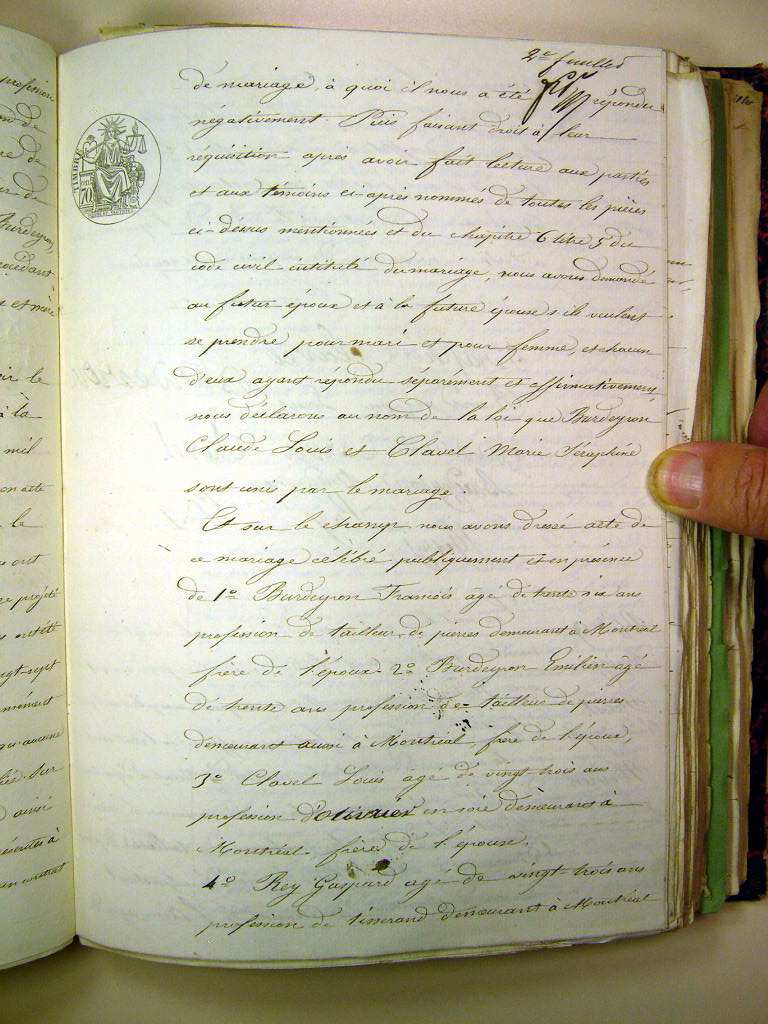 2e feuillet
de mariage, à quoi il nous a été répondu
négativement Puis faisant droit à leur
réquisition après avoir fait lecture aux parties
et aux témoins ci-après nommés de toutes les pièces
ci-dessus mentionnées et du chapitre 6 titre 5 du
code civil intitulé du mariage, nous avons demandé
au futur époux et à la future épouse s'ils veulent
se prendre pour mari et pour femme, et chacun
d'eux ayant répondu séparément et affirmativement
nous déclarons au nom de la loi que Burdeyron
Claude Louis et Clavel Marie Séraphine
sont unis par le mariage.
Et sur le champ nous avons dressé acte de
ce mariage célébré publiquement et en présence
de 1o Burdeyron Francois âgé de trente six ans
profession de tailleur de pierres demeurant à Montréal
frère de l'époux 2o Burdeyron Emilien âgé
de trente ans profession de tailleur de pierres
demeurant aussi à Montréal, frère de l'époux,
3o Clavel Louis âgé de vingt trois ans
profession d'ouvrier en soie demeurant à
Montréal. frère de l'épouse.
4o Rey Gaspard agé de vingt trois ans
profession de tisserand demeurant à Montréal
TIMBRE
70
profession
de
re de
Burdeyron,
à la
mil
le
ont
projeté
vingt-sept
aucune
sur
ainsi
à
contrat